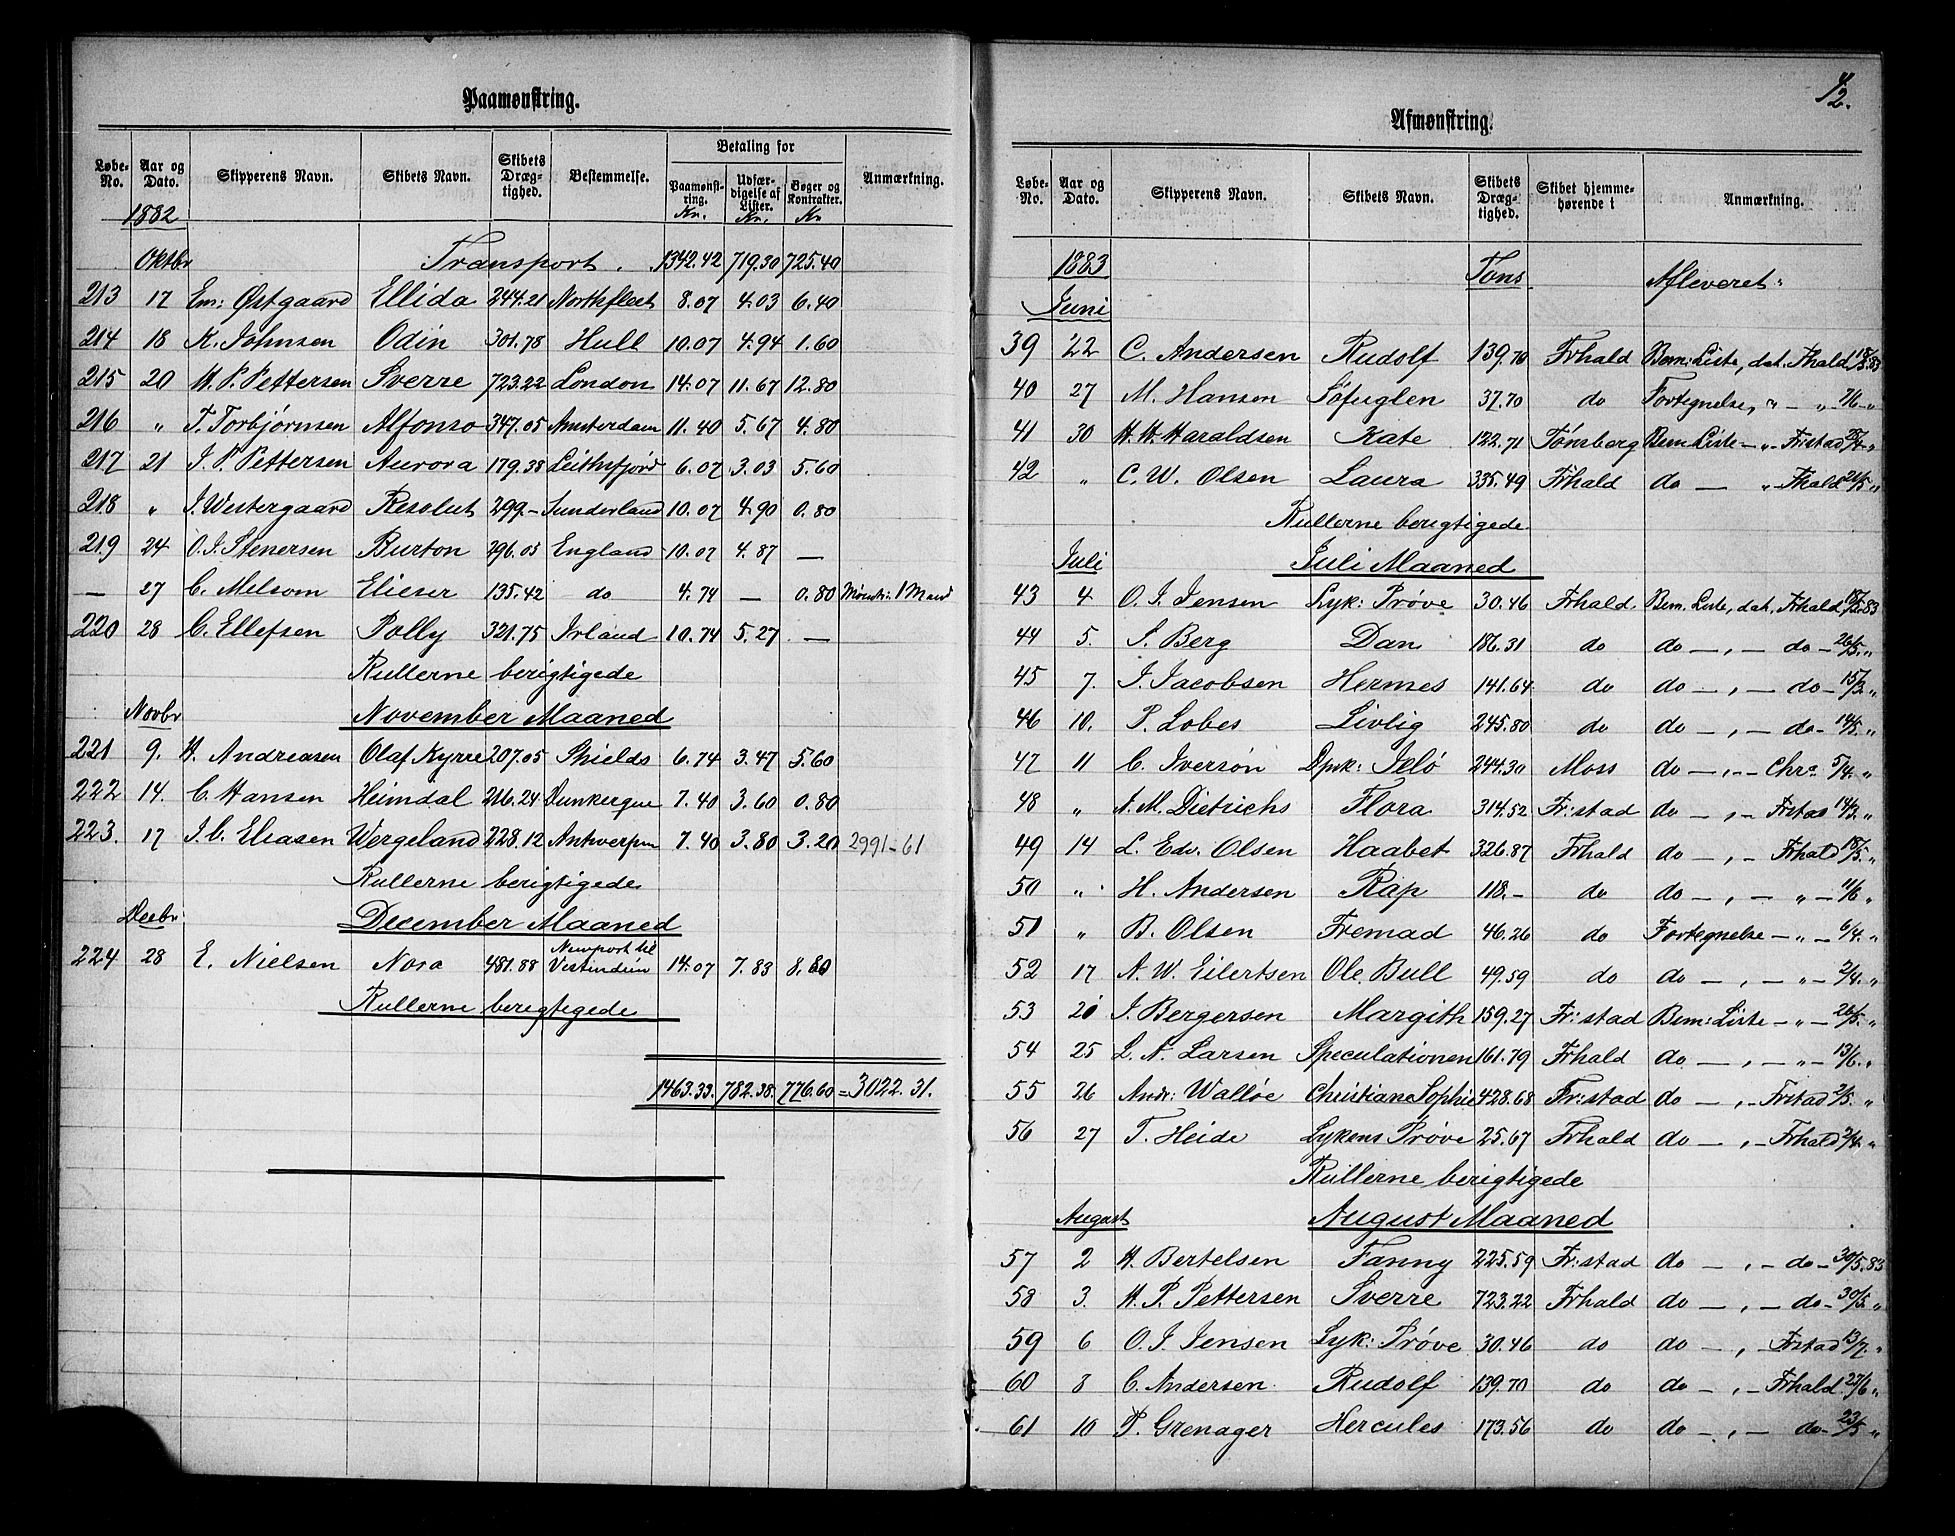 Paamønstring.
Løbe-No. Aar og Dato. Skipperens Navn. Skibets Navn. Skibets Dræg-tighed. Bestemmelse. Betaling for Anmærkning.
Paamønst-ring. Udfær-digelse af Lister. Bøger og Kontrakter.
1882 Kr. Kr. Kr
Oktbr Transport. 1342.42 719.30 725.40
213 17 Em: Østgaard Ellida 244.21 Northfleet 8.07 4.03 6.40
214 18 K. Johnsen Odin 301.78 Hull 10.07 4.94 1.60
215 20 H. P. Pettersen Sverre 723.22 London 14.07 11.67 12.80
216 " T. Torbjørnsen Alfonso 347.05 Amsterdam 11.40 5.67 4.80
217 21 J. P. Pettersen Aurora 179.38 Leithsfjord 6.07 3.03 5.60
218 " J. Westergaard Resolut 299.- Sunderland 10.07 4.90 0.80
219 24 O. J. Stenersen Burton 296.05 England 10.07 4.87 —
— 27 C. Melsom Elieser 135.42 do 4.74 — 0.80 Mønstr: 1 Mand
220 28 C. Ellefsen Polly 321.75 Irland 10.74 5.27 —
Rullerne berigtigede
Novbr November Maaned
221 9. H. Andreasen Olaf Kyrre 207.05 Shields 6.74 3.47 5.60
222 14. C. Hansen Heimdal 216.24 Dunkerque 7.40 3.60 0.80
223. 17 J. C. Eliasen Wergeland 228.12 Antwerpen 7.40 3.80 3.20 2991-61
Rullerne berigtigede
Decbr December Maaned
224 28 E. Nielsen Nora 481.88 Newport til Vestindien 14.07 7.83 8.80
Rullerne berigtigede
1463.33. 782.38. 776.60 = 3022.31.
42.
Afmønstring.
Løbe-No. Aar og Dato. Skipperens Navn. Skibets Navn. Skibets Dræg-tighed. Skibet hjemme-hørende i Anmærkning.
1883 Tons Afleveret:
Juni
39 22 C. Andersen Rudolf 139.70 Frhald Bem: Liste, dat. Fhald 18/5.83
40 27 M. Hansen Søfuglen 37.70 do Fortegnelse, " — " 7/6 "
41 30 H. H. Haraldsen Kate 122.71 Tønsberg Bem: Liste — " Frstad "
42 " C. W. Olsen Laura 335.49 Frhald do — " Fhald 21/5 "
Rullerne berigtigede
Juli Juli Maaned
43 4 O. J. Jensen Lyk: Prøve 30.46 Frhald. Bem. Liste, dat. Frhald 83
44 5. S. Berg Dan 186.31 do do — , — do — 26/5. "
45 7. J. Jacobsen Hermes 141.64 do do — , — do — 15/3. "
46 10. P. Lobes Livlig 245.80 do do — , — do — 14/5. "
47 11 C. Iversøn Dpsk: Jelø 244.30 Moss do — , — Chra 5/4. "
48 " A. M. Dietrichs Flora 314.52 Fr:stad do — , — Frstad 14/3. "
49 14 L. Edv. Olsen Haabet 326.87 Frhald do — , — Frhald 18/5. "
50 " H. Andersen Rap 118.- do do — , — " — 11/6 "
51 " B. Olsen Fremad 46.26 do Fortegnelse — " — 6/4. "
52 17 A. W. Eilertsen Ole Bull 49.59 do do — , — " — 2/4. "
53 20 J. Bergersen Margith 159.27 Fr:stad Bem: Liste — " — 26/5. "
54 25 L. A. Larsen Speculationen 161.79 Frhald do — , — " — 13/6. "
55 26 Andr: Walløe Christiane Sophie 428.68 Fr:stad do — , — Frstad 2/5. "
56 27 T. Heide Lykens Prøve 25.67 Frhald do — , — Frhald 2/4. "
Rullerne berigtigede
August August Maaned
57 2 H. Bertelsen Fanny 225.59 Fr:stad do — , — do — 30/5.83
58 3. H. P. Pettersen Sverre 723.22 Frhald do — , — do — 30/5. "
59 6 O. J. Jensen Lyk: Prøve 30.46 do do — , — Frstad 13/7. "
60 8 C. Andersen Rudolf 139.70 do do — , — Frhald. 23/6 "
61 10 P. Grenager Hercules 173.56 do do — , — do — 23/5 "